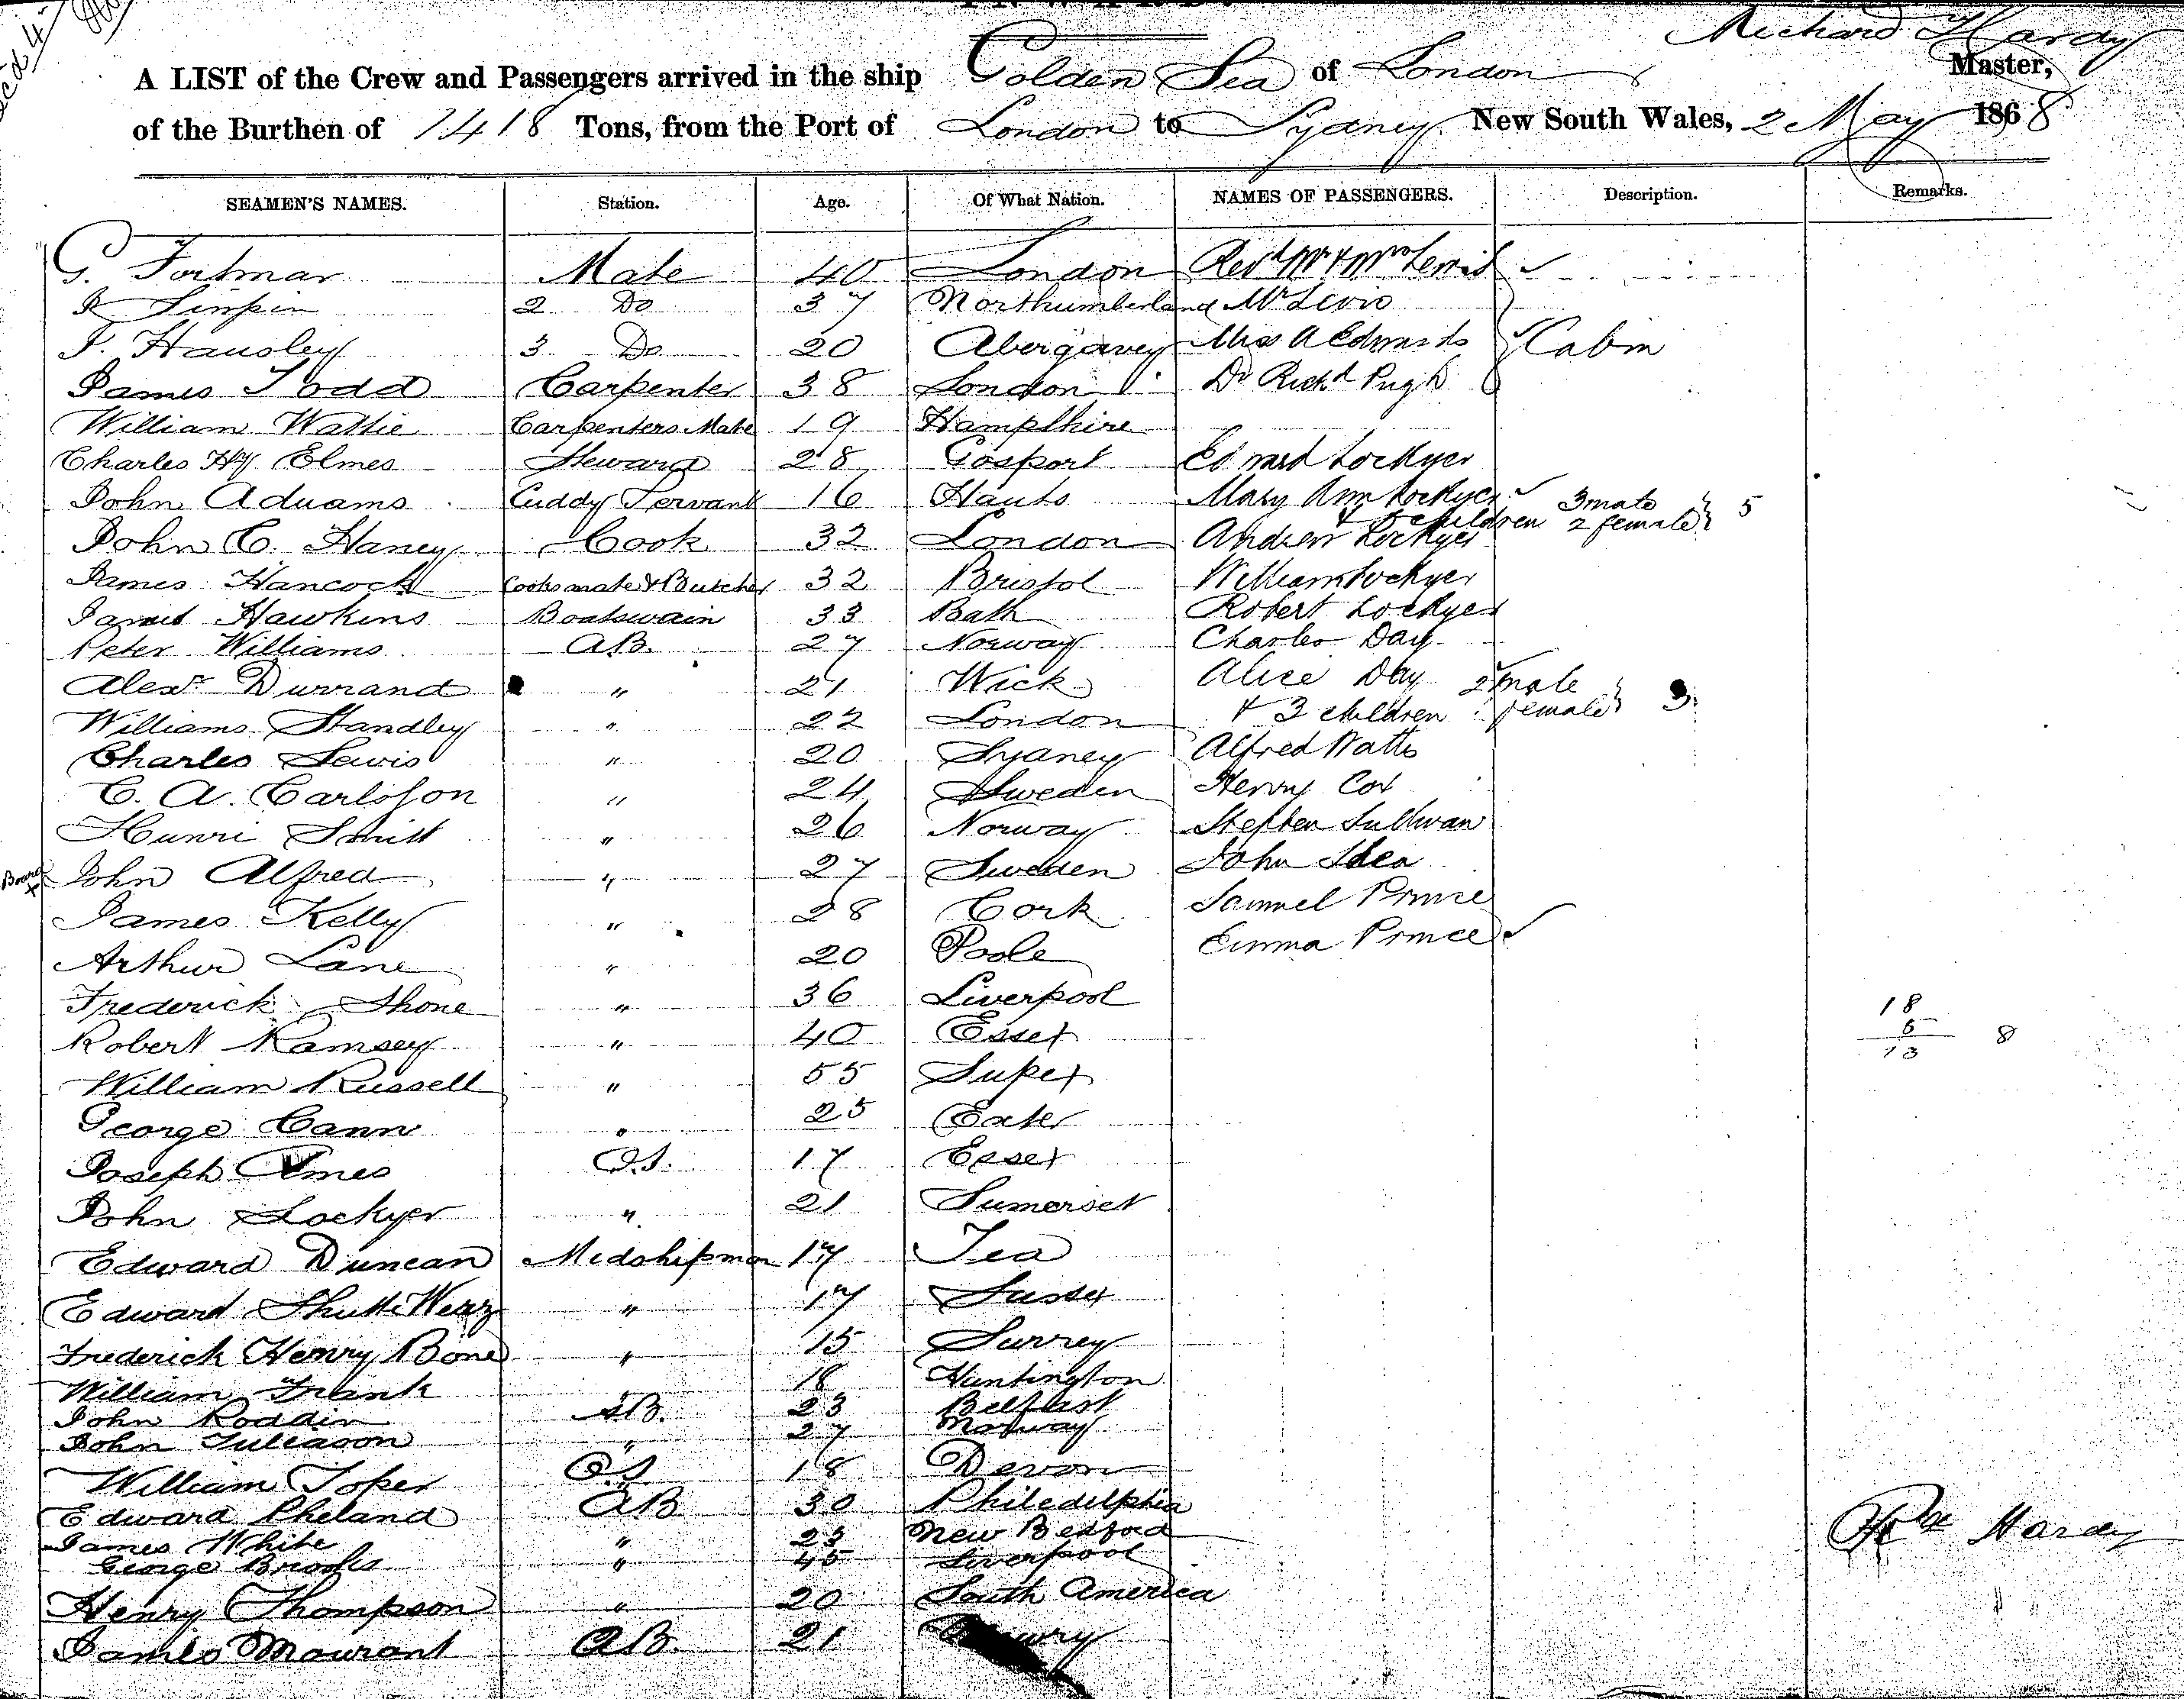 Richard Hardy
A LIST of the Crew and Passengers arrived in the ship Golden Sea of London Master,
of the Burthen of 1418 Tons, from the Port of London to Sydney New South Wales, 2 May 1868
SEAMEN'S NAMES. Station. Age. Of What Nation. NAMES OF PASSENGERS. Description. Remarks.
G. Mate 40 London Revd Mr & Mrs Lewis
2 Do 37 Northumberland Mr
J. Hausley 3 Do 20 Abergaveny Miss A Edwards Cabin
James Todd Carpenter 38 London Dr Richd Pugh
William Wattie Carpenters Mate 19 Hampshire
Charles Hy Elmes Steward 28 Gosport Edward Lockyer
John Aduams Cuddy Servant 16 Hants Mary Ann Lockyer 3 male 5
& 5 children 2 female
John C. Haney Cook 32 London Andrew Lockyer
James Hancock Cooks mate & Butcher 32 Bristol William Lockyer
James Hawkins Boatswain 33 Bath Robert Lockyer
Peter Williams AB. 27 Norway Charles Day
Alexr Durrand " 21 Wick Alice Day 2 male
Williams Standley " 22 London & 3 children female 3
Charles Lewis " 20 Sydney Alfred Watts
C. A. Carlsson " 24 Sweden Henry Cox
Hunri Smitt " 26 Norway Stephen Sullivan
John Alfred " 27 Sweden John Shea
James Kelly " 28 Cork Samuel Prince
Arthur Lane " 20 Poole Emma Prince
Frederick Shone " 36 Liverpool
18
Robert Ramsey " 40 Essex
5 8
13
William Russell " 55 Sussex
George Cann " 25 Exeter
Joseph Ames O.S. 17 Essex
John Lockyer " 21 Sumerset
Edward Duncan Midshipman 17 Sea
Edward " 17 Sussex
Frederick Henry Bone " 15 Surrey
William Frank 18 Huntington
John Roddin AB. 23 Belfast
John Tuleason " 27 Norway
William Toper OS 18 Devon
Edward Pheland AB 30 Philedelphia
James White " 23 New Bedford
George Brooks " 45 Liverpool
Henry Thompson " 20 South America
James Mourant AB. 21
Hardy